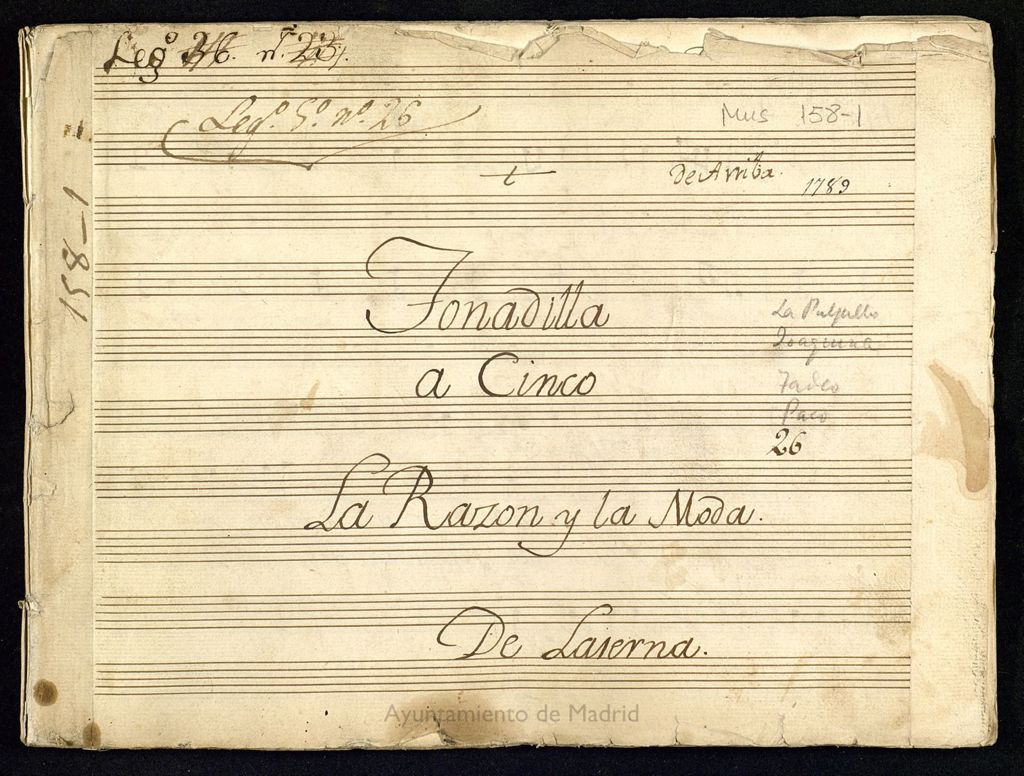 Legº 36. nº. 23.
Legº. 5º. nº. 26
Mus 158-1
t
De Arriba.
1789
158-1
Tonadilla
a Cinco
La
Joaquina
Tadeo
Paco
26
La Razon y la Moda.
De Laserna.
Ayuntamiento de Madrid